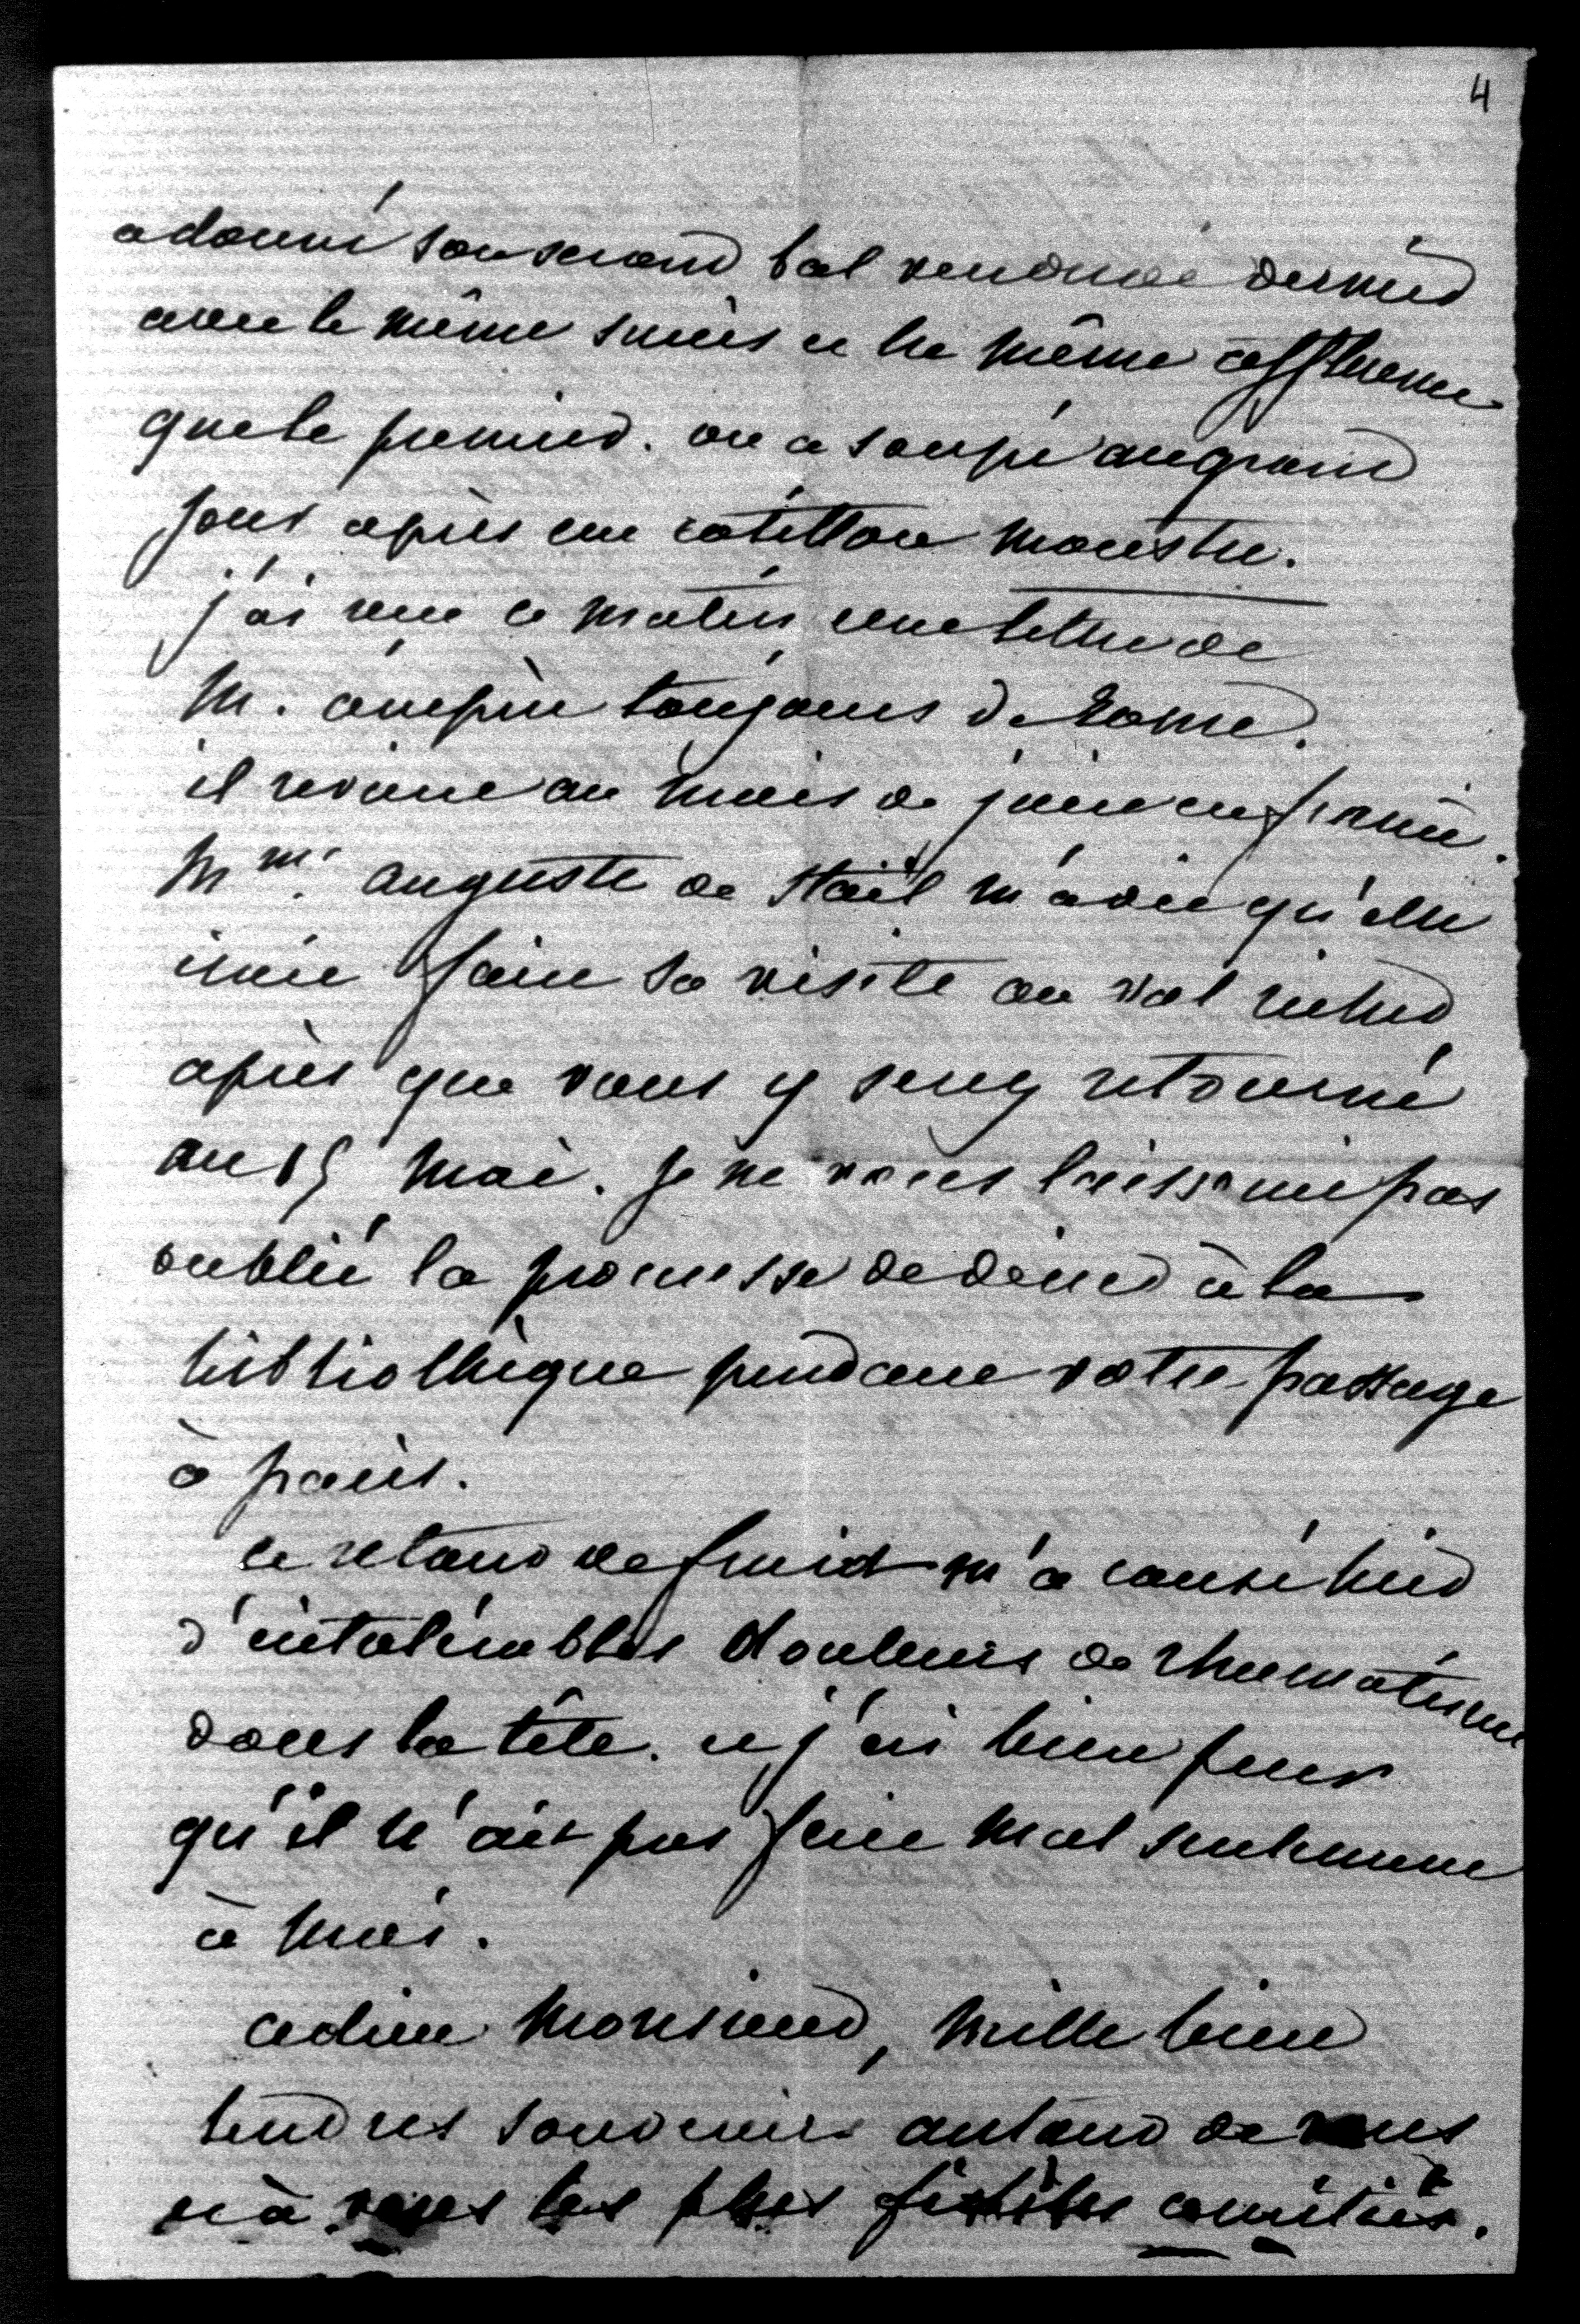 4
a donné son second bal vendredi dernier
avec le même succès et la même affluence
que le premier. on a soupé au grand
jour après un cotillon monstre.
j'ai reçu ce matin une lettre de
M. ampère toujours de Rome.
il revient au mois de juin en france.
Mme auguste de Staël m'a dit qu'elle
irait faire sa visite au val richer
après que vous y serez retourné
au 15 mai. je ne vous laisserai pas
oublier la promesse de diner à la
bibliothèque pendant votre passage
à paris.
ce retour de froid m'a causé hier
d'intolérables douleurs de rhumatisme
dans la tête. et j'ai bien peur
qu'il n'ait pas fait mal seulement
à moi.
adieu Monsieur, mille bien
tendres souvenirs autour de vous
et à vous les plus fidèles amitiés.